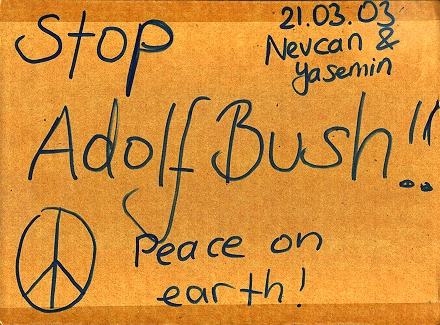 Stop
21.03.03
Nevcan &
Yasemin
Adolf Bush!!
Peace on
earth!